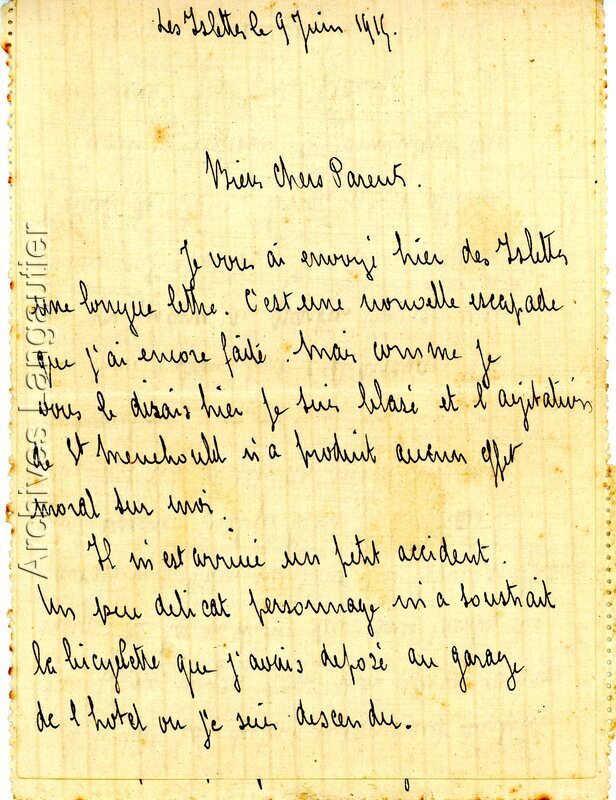 Les Islettes le 9 Juin 1915.
Bien chers Parents.
Je vous ai envoyé hier des Islettes
une longue lettre. C'est une nouvelle escapade
que j'ai encore faite. Mais comme je
vous le disais hier je suis blasé et l'agitation
de St Menehould n'a produit aucun effet
moral sur moi.
Il m'est arrivé un petit accident.
Un peu delicat personnage m'a soustrait
la bicyclette que j'avais deposé au garage
de l'hotel ou je suis descendu.
Archives Langautier